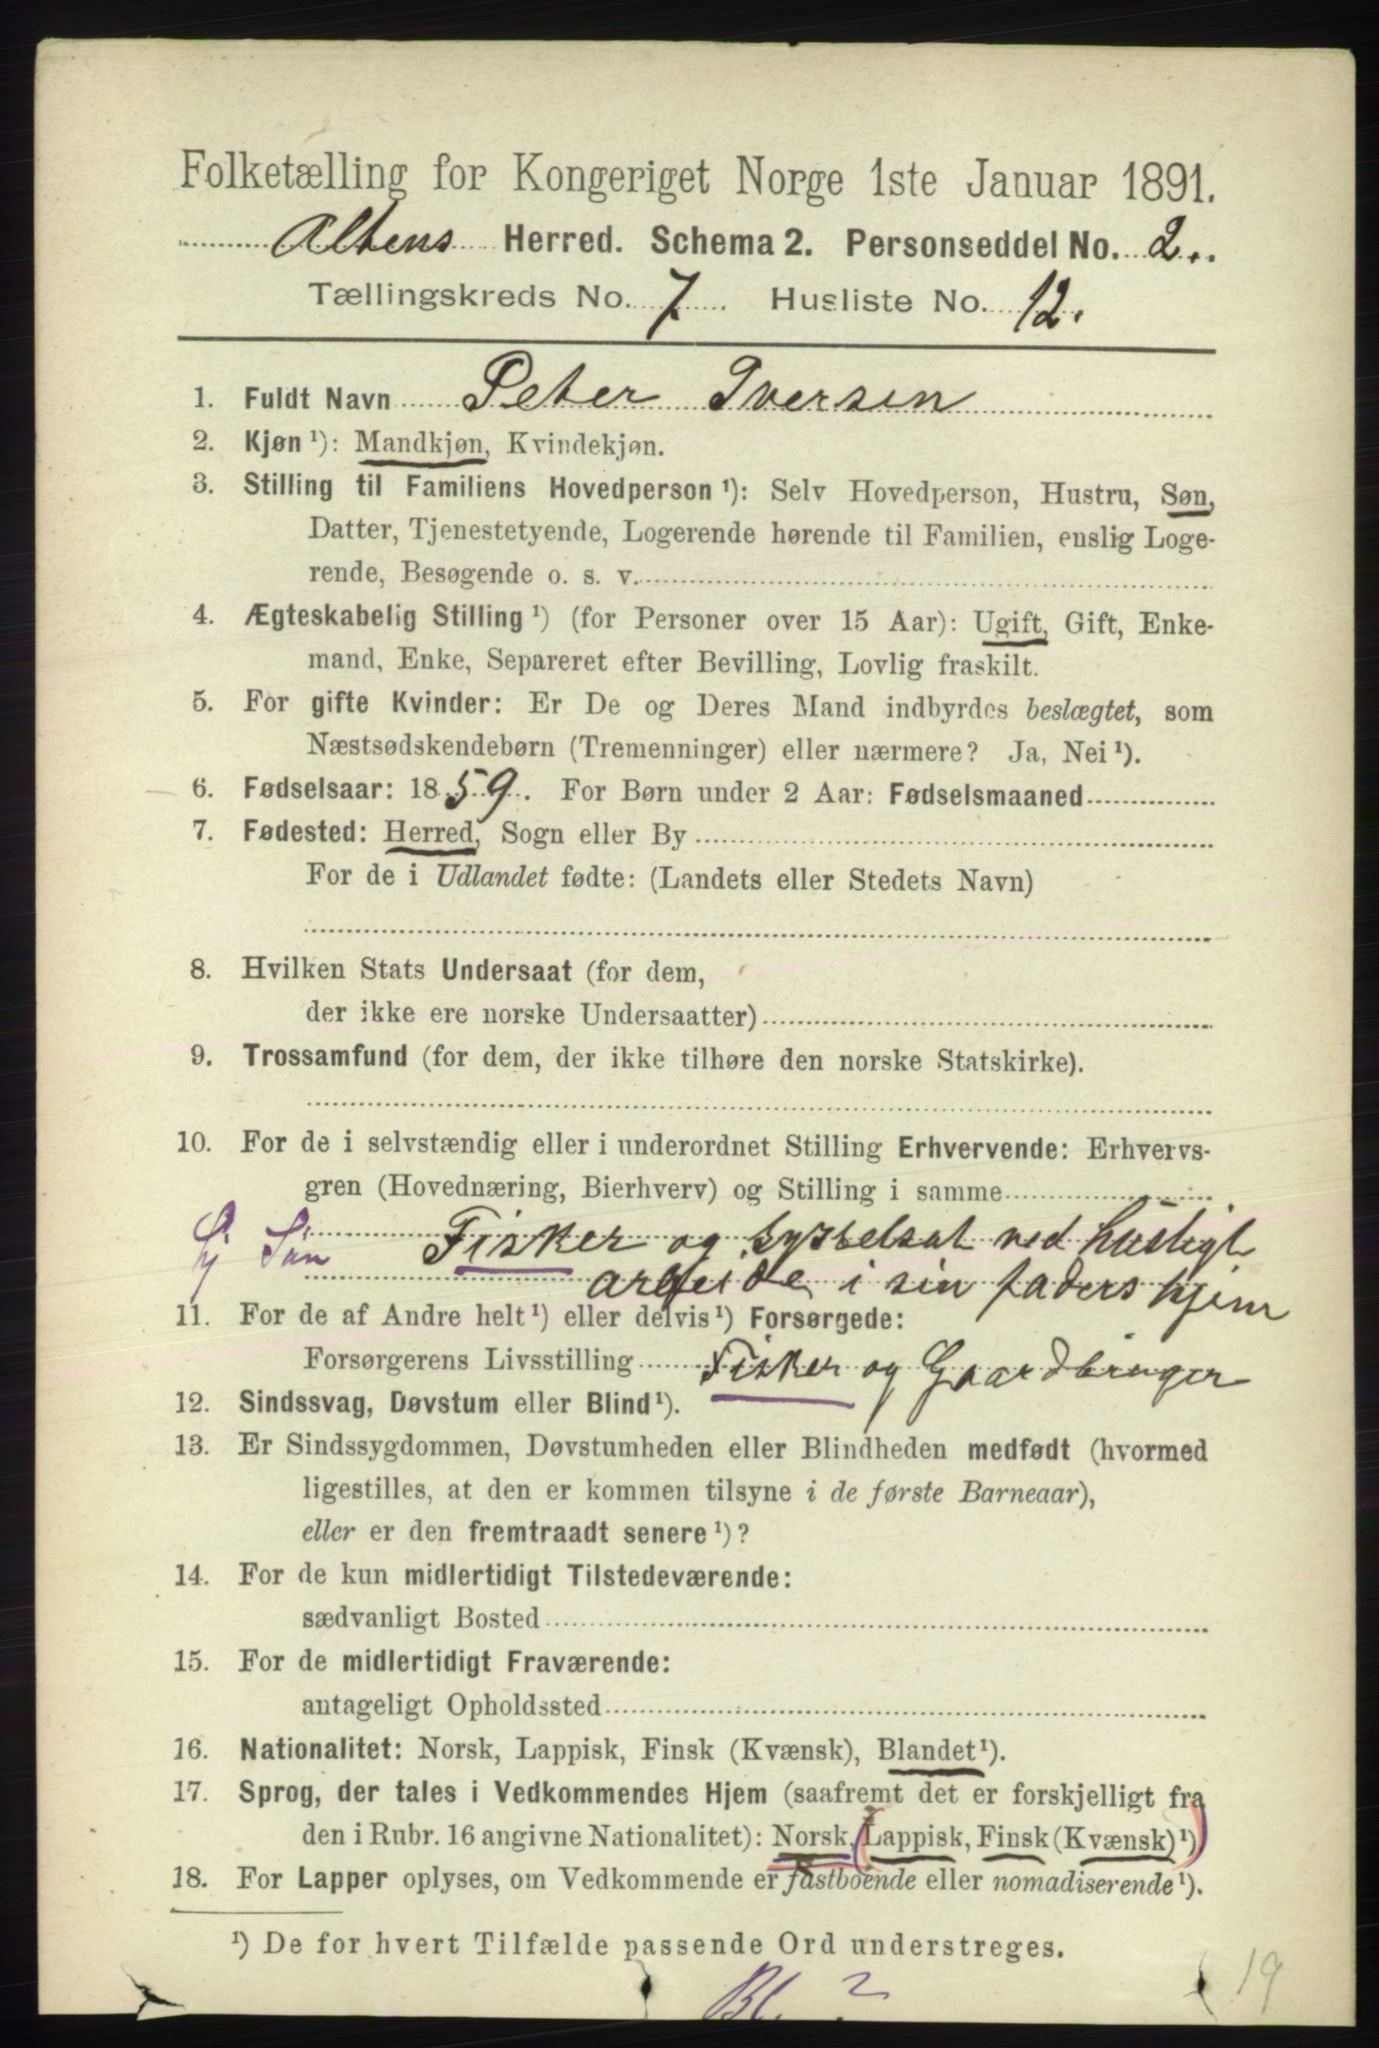 Folketælling for Kongeriget Norge 1ste Januar 1891.
Altens Herred. Schema 2. Personseddel No. 2.
Tællingskreds No. 7 Husliste No. 12.
1. Fuldt Navn Peter Iversen
2. Kjøn ¹): Mandkjøn, Kvindekjøn.
3. Stilling til Familiens Hovedperson ¹): Selv Hovedperson, Hustru, Søn,
Datter, Tjenestetyende, Logerende hørende til Familien, enslig Loge-
rende, Besøgende o. s. v.
4. Ægteskabelig Stilling ¹) (for Personer over 15 Aar): Ugift, Gift, Enke-
mand, Enke, Separeret efter Bevilling, Lovlig fraskilt.
5. For gifte Kvinder: Er De og Deres Mand indbyrdes beslægtet, som
Næstsødskendebørn (Tremenninger) eller nærmere? Ja, Nei ¹).
6. Fødselsaar: 1859. For Børn under 2 Aar: Fødselsmaaned
7. Fødested: Herred, Sogn eller By
For de i Udlandet fødte: (Landets eller Stedets Navn)
8. Hvilken Stats Undersaat (for dem,
der ikke ere norske Undersaatter)
9. Trossamfund (for dem, der ikke tilhøre den norske Statskirke).
10. For de i selvstændig eller i underordnet Stilling Erhvervende: Erhvervs-
gren (Hovednæring, Bierhverv) og Stilling i samme
Gj Søn Fisker og sysselsat ved husligt
arbeide i sin faders hjem
11. For de af Andre helt ¹) eller delvis ¹) Forsørgede:
Forsørgerens Livsstilling Fisker og Gaardbruger
12. Sindssvag, Døvstum eller Blind ¹).
13. Er Sindssygdommen, Døvstumheden eller Blindheden medfødt (hvormed
ligestilles, at den er kommen tilsyne i de første Barneaar),
eller er den fremtraadt senere ¹)?
14. For de kun midlertidigt Tilstedeværende:
sædvanligt Bosted
15. For de midlertidigt Fraværende:
antageligt Opholdssted
16. Nationalitet: Norsk, Lappisk, Finsk (Kvænsk), Blandet ¹).
17. Sprog, der tales i Vedkommendes Hjem (saafremt det er forskjelligt fra
den i Rubr. 16 angivne Nationalitet): Norsk, (Lappisk, Finsk (Kvænsk) ¹)
18. For Lapper oplyses, om Vedkommende er fastboende eller nomadiserende ¹).
¹) De for hvert Tilfælde passende Ord understreges.
Bl. ?
19